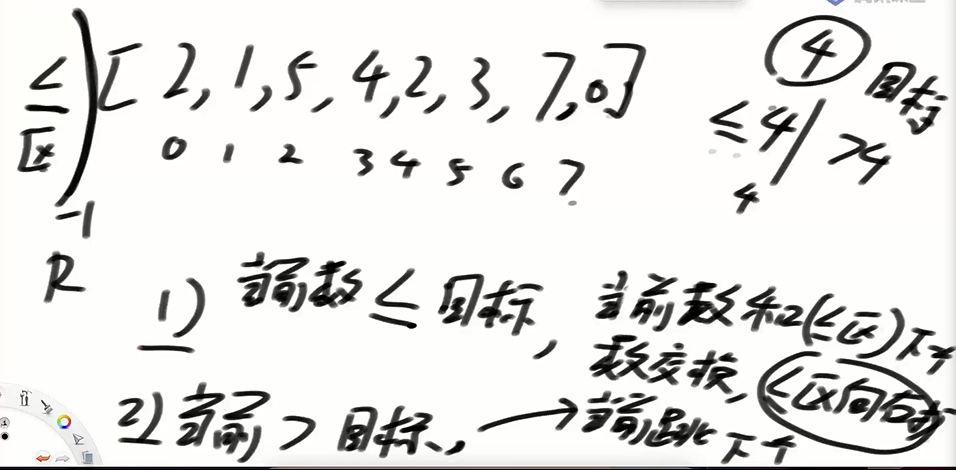 ≤ [ 2, 1, 5, 4, 2, 3, 7, 0 ] 4 目标
区 0 1 2 3 4 5 6 7 ≤4 / >4
-1 4
R
1) 当前数 ≤ 目标, 当前数和(≤区)下一个
数交换, ≤区向右扩
2) 当前 > 目标, → 当前跳下一个